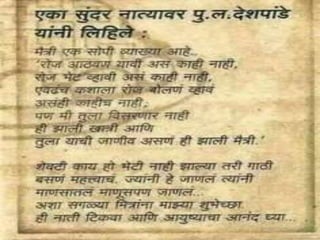 एका सुंदर नात्यावर पु.ल.देशपांडे
यांनी लिहिले :
मैत्री एक सोपी व्याख्या आहे..
'रोज आठवण यावी असं काही नाही,
रोज भेट व्हावी असं काही नाही,
एवढंच कशाला रोज बोलणं व्हावं
असंही काहीच नाही;
पण मी तुला विसरणार नाही
ही झाली खात्री आणि
तुला याची जाणीव असणं ही झाली मैत्री.'
शेवटी काय हो भेटी नाही झाल्या तरी गाठी
बसणं महत्त्वाचं. ज्यांनी हे जाणलं त्यांनी
माणसातलं माणूसपण जाणलं...
अशा सगळ्या मित्रांना माझ्या शुभेच्छा
ही नाती टिकवा आणि आयुष्याचा आनंद घ्या...